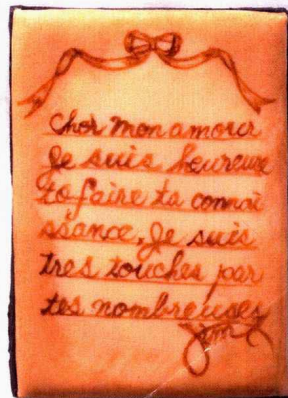 cher mon amour
Je suis heureuse
to faire ta connai
ssance, Je suis
tres touches par
tes nombreuses